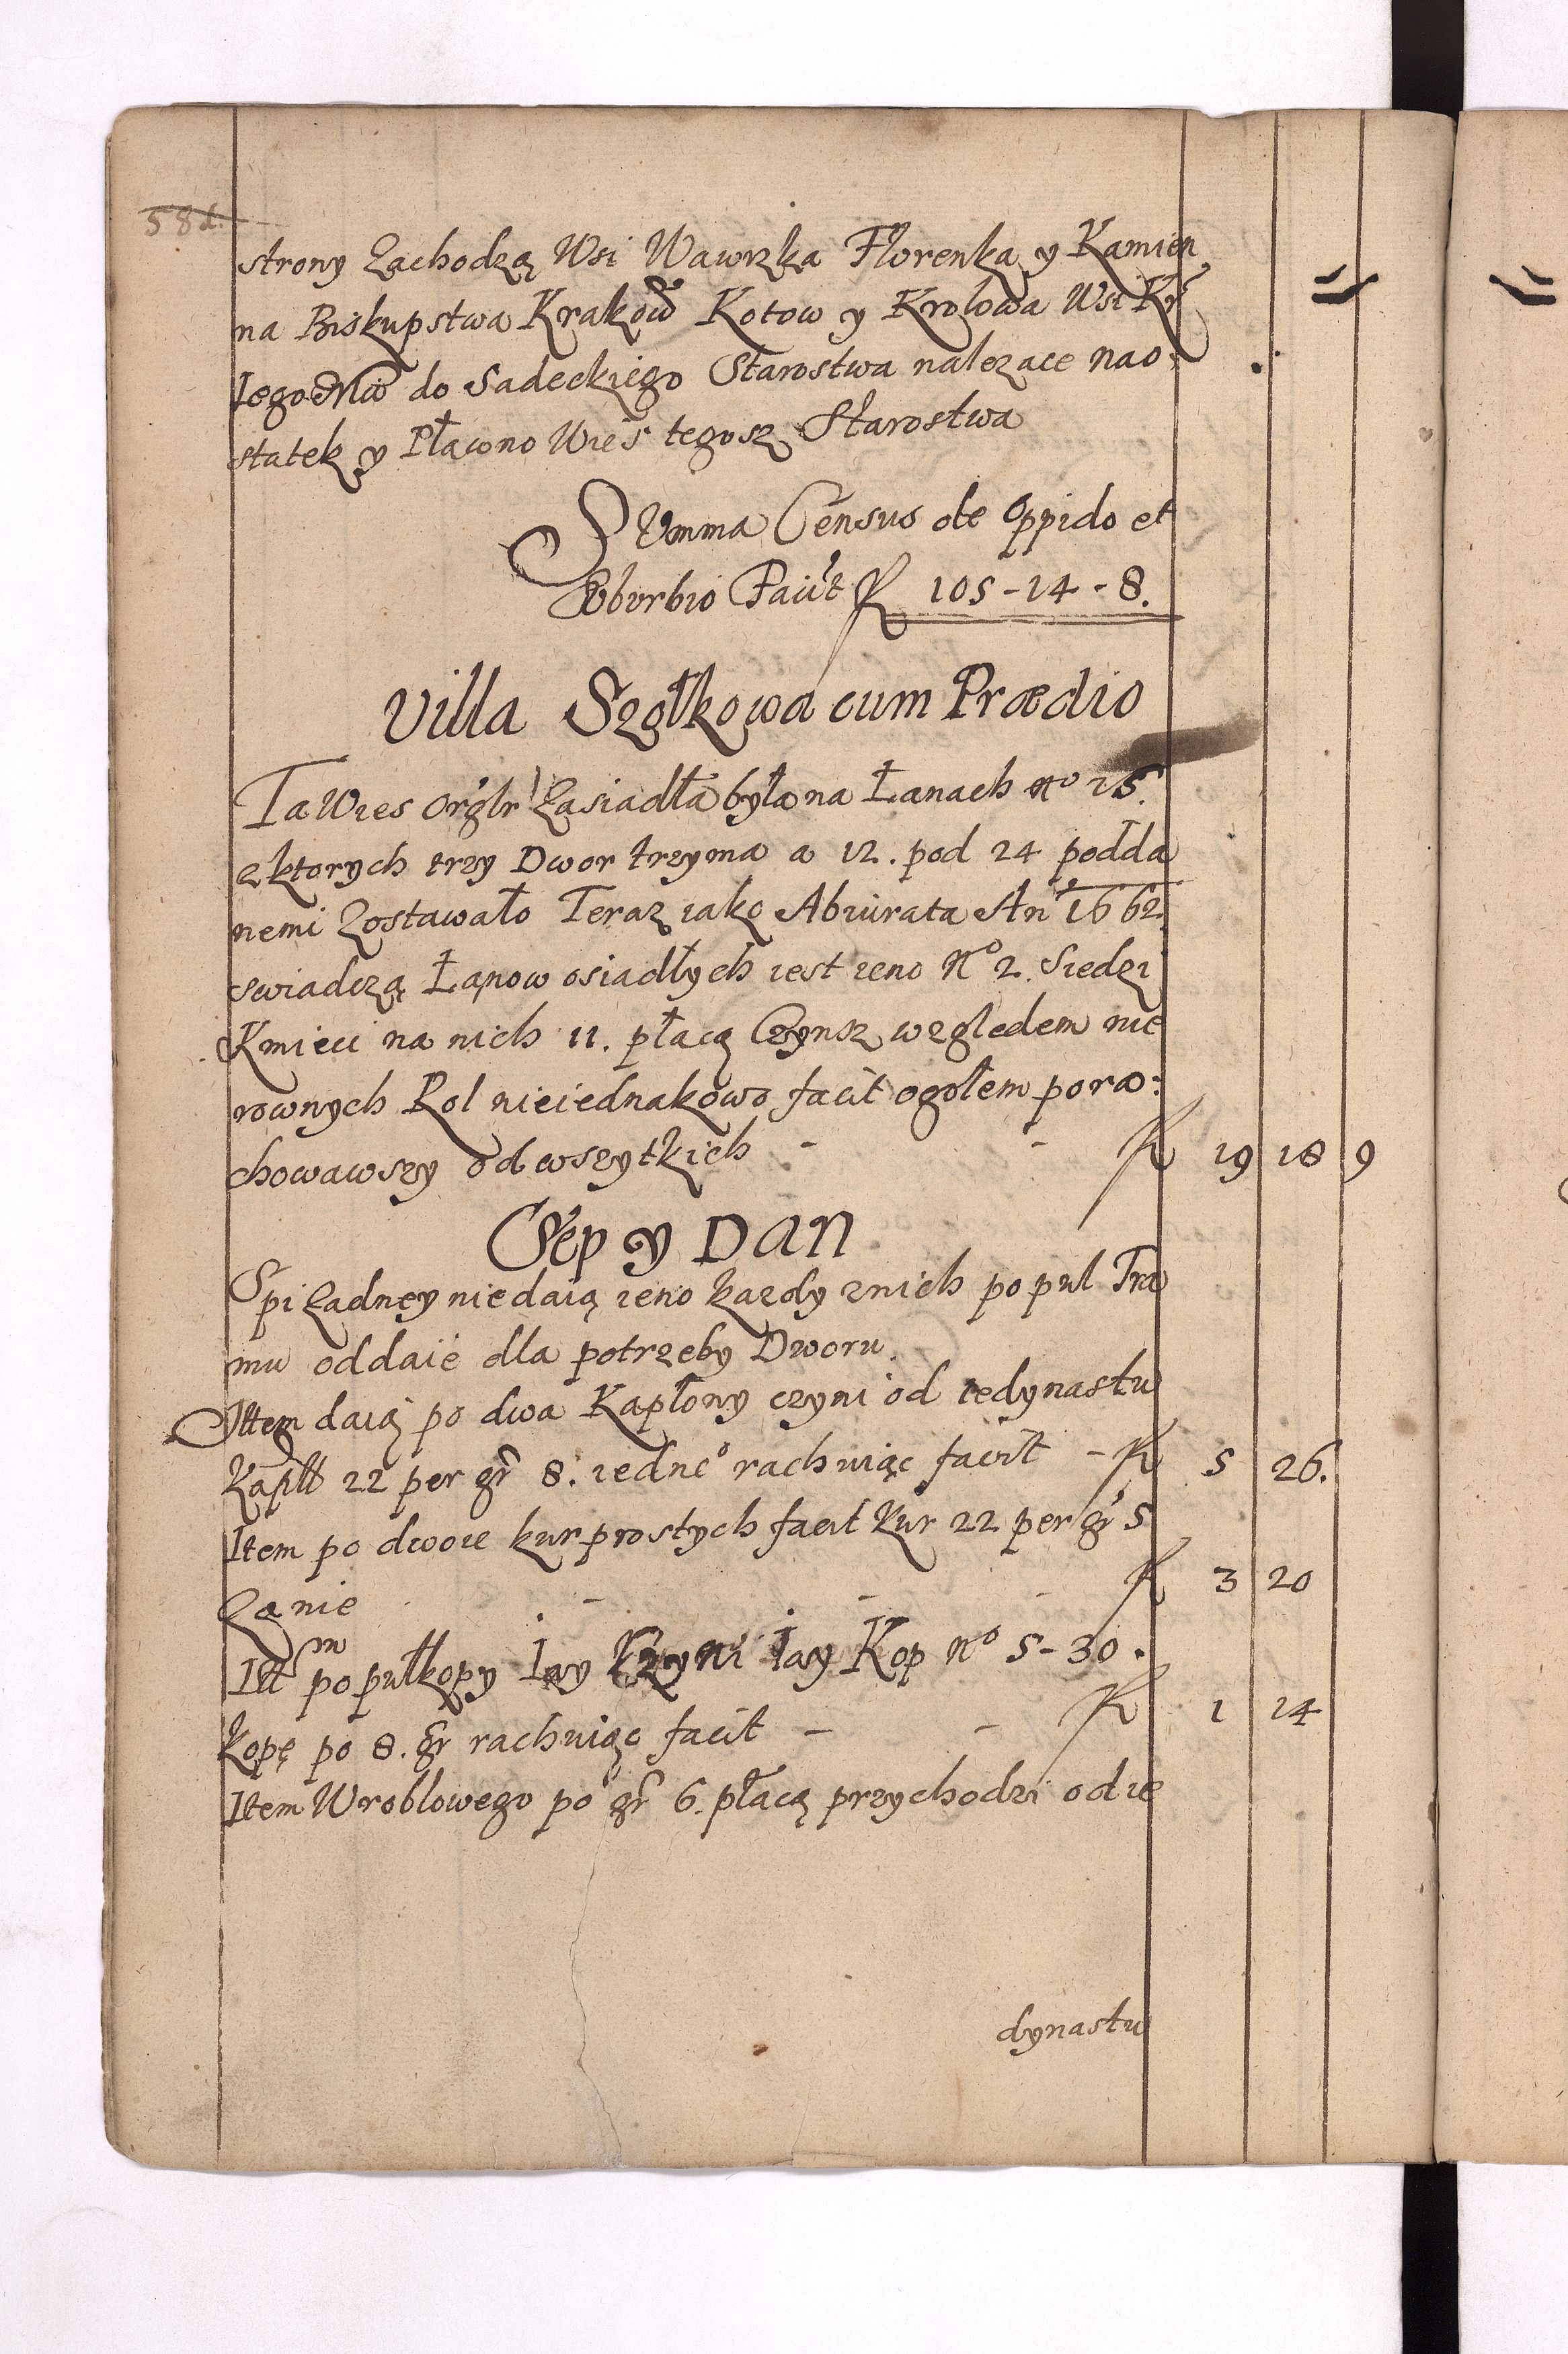 581.
strony Zachodzą Wsi Wawrzka Florenka y Kamien
na Biskupstwa Krakow Kotow y Krolowa Wsi Kr
Iego Mci do Sadeckiego Starostwa nalezace na o=
statek y Pławno Wies tegosz Starostwa
Summa Census de Oppido et
Suburbio Facit R 105 - 14 - 8.
Villa Szołkowa cum Prædio
Ta Wies Orglr Zasiadła była na Łanach No 15.
z ktorych trzy Dwor trzyma a 12. pod 24 podda
nemi Zostawało Teraz iako Abiurata An 1662.
swiadczą Łanow osiadłych iest ieno No 2. Siedzi
Kmieci na nich 11. płacą Czynsz wzgledem nie
rownych Rol nieiednakowo facit ogołem pora=
chowawszy od wszytkich - - R 19 18 9
Sep y Dan
Spi Zadney niedaią ieno kazdy z nich po pul Tra
mu oddaie dla potrzeby Dworu.
Ittem daią po dwa Kapłony czyni od iedynastu
Kapłł 22 per gr 8. iedneo rachuiąc facit - R 5 26.
Item po dwoie kur prostych facit Kur 22 per gr 5
Zanie - - - R 3 20
Ittm po pułkopy Iay Czyni Iay Kop No 5 - 30.
kopę po 8. gr rachuiąc facit - - R 1 14
Item Wroblowego po gr 6. płacą przychodzi od ie
dynastu